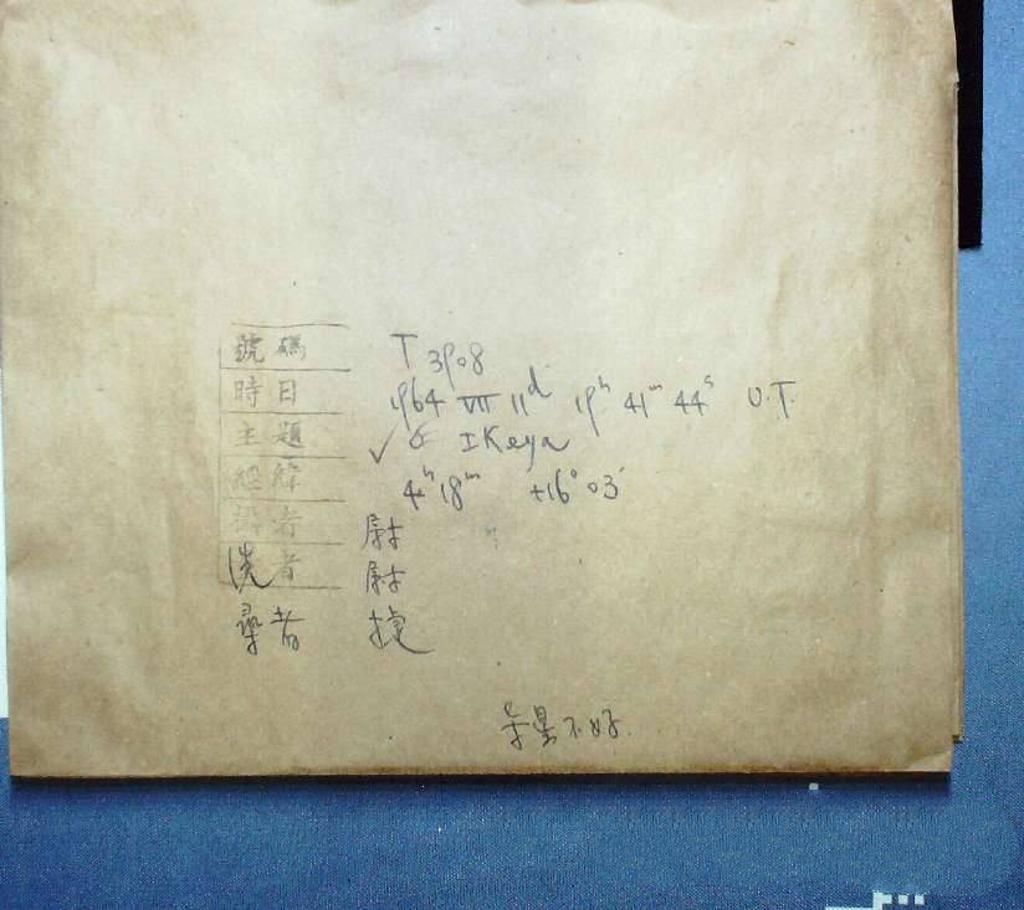 號碼 T 3908
時日 1964 VII 11ᵈ 19ʰ 41ᵐ 44ˢ U.T.
主題 ✓ Ikeya
經緯 4ʰ18ᵐ +16°03′
者 尉
者 尉
尋者 捷
导星不好.